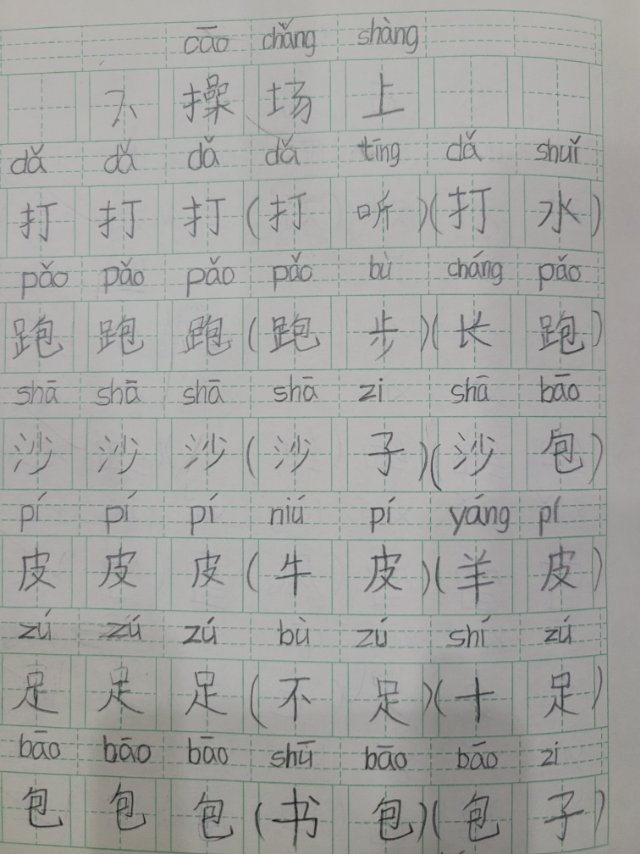 cāo chǎng shàng
不 操 场 上
dǎ dǎ dǎ dǎ tīng dǎ shuǐ
打 打 打 ( 打 听 ) ( 打 水 )
pǎo pǎo pǎo pǎo bù cháng pǎo
跑 跑 跑 ( 跑 步 ) ( 长 跑 )
shā shā shā shā zi shā bāo
沙 沙 沙 ( 沙 子 ) ( 沙 包 )
pí pí pí niú pí yáng pí
皮 皮 皮 ( 牛 皮 ) ( 羊 皮 )
zú zú zú bù zú shí zú
足 足 足 ( 不 足 ) ( 十 足 )
bāo bāo bāo shū bāo bāo zi
包 包 包 ( 书 包 ) ( 包 子 )